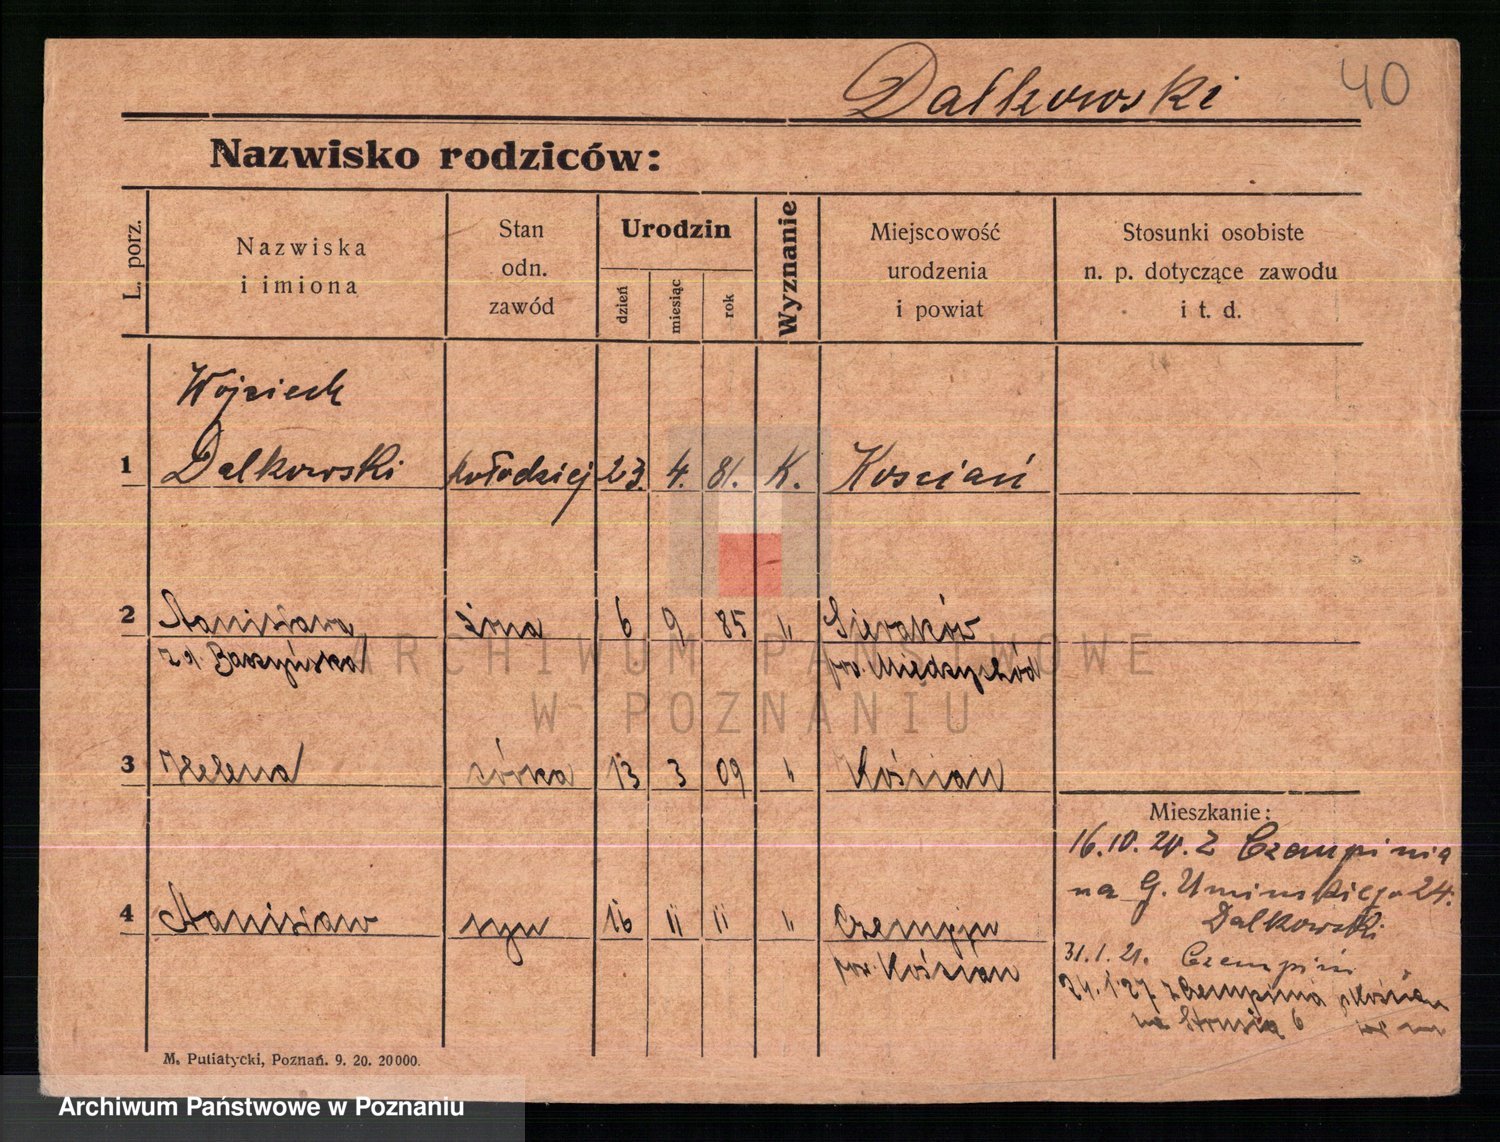 Dalkowski
40
Nazwisko rodziców:
L. porz.
Nazwiska
i imiona
Stan
odn.
zawód
Urodzin
dzień
miesiąc
rok
Wyznanie
Miejscowość
urodzenia
i powiat
Stosunki osobiste
n. p. dotyczące zawodu
i t. d.
Wojciech
1 Dalkowski kołodziej 23. 4. 81. K. Koscian
2 Stanisława żona 6 9 85 " Sieraków
zd. Baszyńska pow. Międzychód
3 Helena córka 13 3 09 " Kościan
Mieszkanie:
16.10.20. z Czempinia
na G. Umińskiego 24.
4 Stanisław syn 16 11 11 " Czempiń
Dalkowski
pow. Kościan
31.1.21. Czempiń
24.1.27 z Czempinia p. Kościan
na Strusia 6
M. Putiatycki, Poznań. 9. 20. 20000.
ARCHIWUM PAŃSTWOWE
W POZNANIU
Archiwum Państwowe w Poznaniu